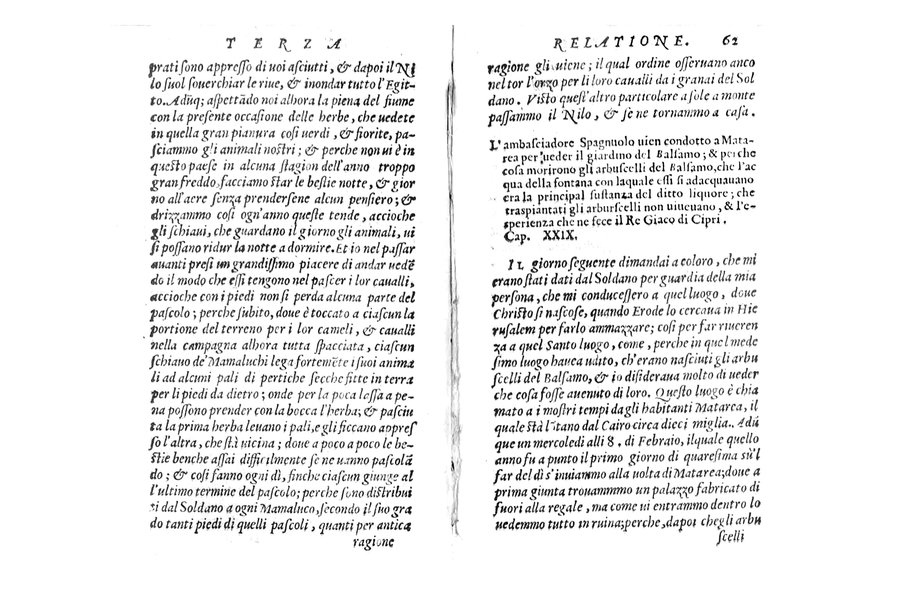 TERZA
prati sono appresso di uoi asciutti, & dapoi il Ni
lo suol souerchiar le riue, & inondar tutto l'Egit-
to. Adūq; aspettādo noi alhora la piena del fiume
con la presente occasione delle herbe, che uedete
in quella gran pianura cosi uerdi, & fiorite, pa-
sciammo gli animali nostri; & perche non ui è in
questo paese in alcuna stagion dell'anno troppo
gran freddo, facciamo star le bestie notte, & gior
no all'aere senza prendersene alcun pensiero; &
drizzammo cosi ogn'anno queste tende, accioche
gli schiaui, che guardano il giorno gli animali, ui
si possano ridur la notte a dormire. Et io nel passar
auanti presi un grandissimo piacere di andar uedē
do il modo che essi tengono nel pascer i lor caualli,
accioche con i piedi non si perda alcuna parte del
pascolo; perche subito, doue è toccato a ciascun la
portione del terreno per i lor cameli, & caualli
nella campagna alhora tutta spacciata, ciascun
schiauo de' Mamaluchi lega fortemēte i suoi anima
li ad alcuni pali di pertiche secche fitte in terra
per li piedi da dietro; onde per la poca lassa a pe-
na possono prender con la bocca l'herba; & pasciu
ta la prima herba leuano i pali, e gli ficcano appres
so l'altra, che stà uicina; doue a poco a poco le be-
stie benche assai difficilmente se ne uanno pascolā
do; & cosi fanno ogni dì, finche ciascun giunge al
l'ultimo termine del pascolo; perche sono distribui
ti dal Soldano a ogni Mamaluco, secondo il suo gra
do tanti piedi di quelli pascoli, quanti per antica
ragione
RELATIONE. 62
ragione gli uiene; il qual ordine osseruano anco
nel tor l'orzo per li loro caualli da i granai del Sol
dano. Visto quest'altro particolare a sole a monte
passammo il Nilo, & se ne tornammo a casa.
L'ambasciadore Spagnuolo uien condotto a Mata-
rea per ueder il giardino del Balsamo; & perche
cosa morirono gli arbuscelli del Balsamo, che l'ac
qua della fontana con laquale essi si adacquauano
era la principal sustanza del ditto liquore; che
traspiantati gli arburscelli non uiueuano, & l'es-
perienza che ne fece il Re Giaco di Cipri.
Cap. XXIX.
IL giorno seguente dimandai a coloro, che mi
erano stati dati dal Soldano per guardia della mia
persona, che mi conducessero a quel luogo, doue
Christo si nascose, quando Erode lo cercaua in Hie
rusalem per farlo ammazzare; cosi per far riueren
za a quel Santo luogo, come, perche in quel mede
simo luogo hauea udito, ch'erano nasciuti gli arbu
scelli del Balsamo, & io disideraua molto di ueder
che cosa fosse auenuto di loro. Questo luogo è chia
mato a i nostri tempi dagli habitanti Matarea, il
quale stà lōtano dal Cairo circa dieci miglia. Adū
que un mercoledi alli 8. di Febraio, ilquale quello
anno fu a punto il primo giorno di quaresima sù'l
far del dì s'inuiammo alla uolta di Matarea; doue a
prima giunta trouammmo un palazzo fabricato di
fuori alla regale, ma come ui entrammo dentro lo
uedemmo tutto in ruina; perche, dapoi che gli arbu
scelli